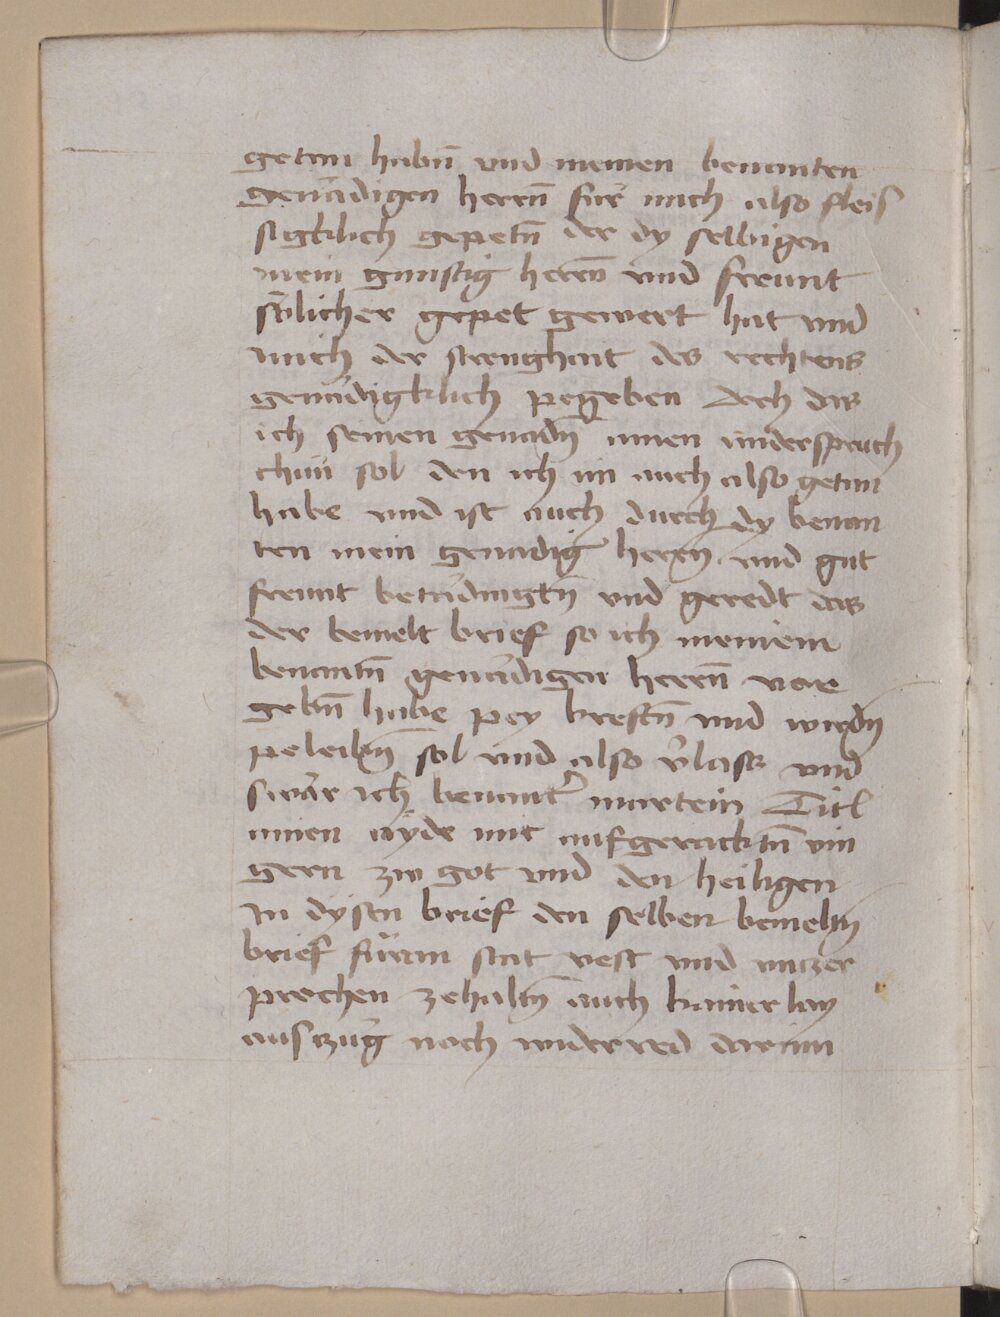 getan habn̄ vnd meinen benanten
genädigen herrn̄ für mich also fleis
sigklich gepetn̄ der dy selbigen
mein gunstig herrn̄ vnd freunt
sölicher gepet gewert hat vnd
mich der strenghait des rechtens
genädigklich pegeben doch das
ich seinen genadn̄ ainen vndersprach
thun sol den ich im auch also getan
habe vnd ist auch durch dy benan
ten mein genadig herrn̄ vnd gut
freunt betädingtn̄ vnd geredt das
der bemelt brief so ich meinem
benantn̄ genädigen herrn̄ vor
gebn̄ habe pey kreftn̄ vnd wirdn̄
peleibn̄ sol vnd also vlasz vnd
swär ich benanter martein Titl
ainen ayde mit aufgeracktn̄ vin
gern zw got vnd den heiligen
In dysen brief den selben bemeltn̄
brief füran stat vest vnd vnzer
prochen zehaltn̄ auch kainerlay
auszüg noch widerred darinn